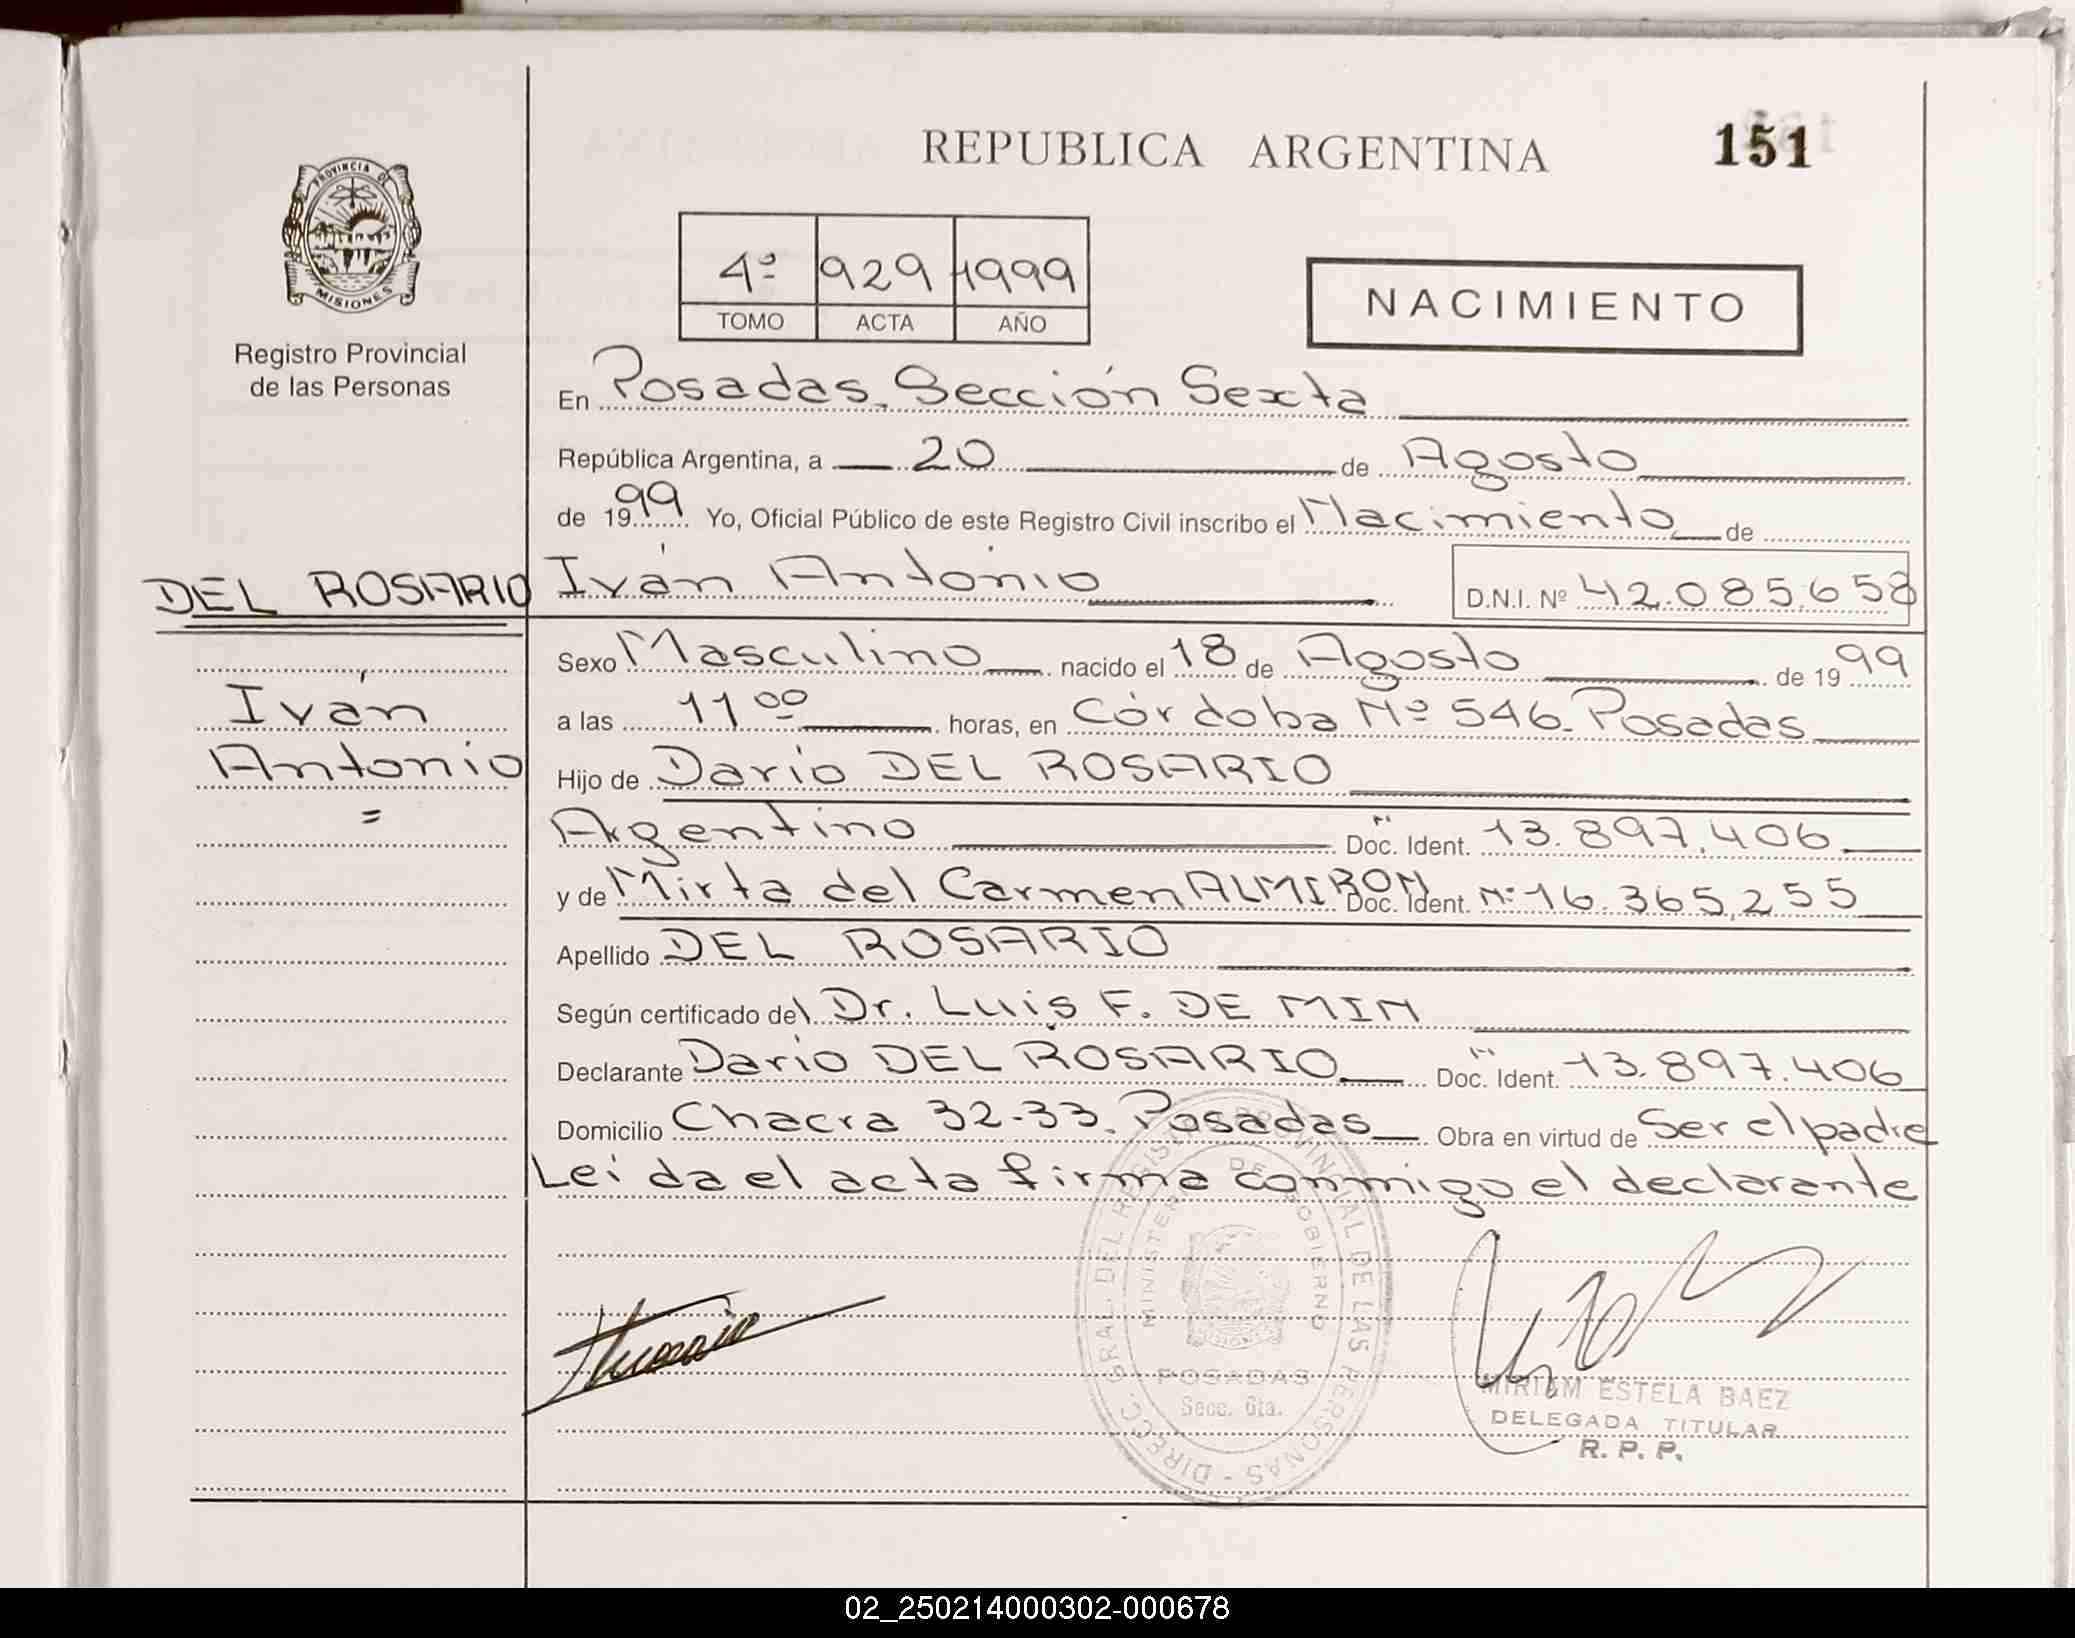 REPUBLICA ARGENTINA
151
PROVINCIA DE
MISIONES
Registro Provincial
de las Personas
4º 929 1999
TOMO ACTA AÑO
NACIMIENTO
En Posadas. Sección Sexta
República Argentina, a 20 de Agosto
de 1999 Yo, Oficial Público de este Registro Civil inscribo el Nacimiento de
DEL ROSARIO Iván Antonio D.N.I. Nº 42.085.658
Sexo Masculino nacido el 18 de Agosto de 1999
Iván
a las 11 00 horas, en Córdoba Nº 546. Posadas
Antonio
Hijo de Darío DEL ROSARIO
=
Argentino Doc. Ident. 13.897.406
y de Mirta del Carmen ALMIRON Doc. Ident. Nº 16.365.255
Apellido DEL ROSARIO
Según certificado del Dr. Luis F. DE MIN
Declarante Darío DEL ROSARIO Doc. Ident. 13.897.406
Domicilio Chacra 32-33. Posadas Obra en virtud de Ser el padre
Leída el acta firma conmigo el declarante
DIRECC. GRAL. DEL REGISTRO PROVINCIAL DE LAS PERSONAS
MINISTERIO DE GOBIERNO
POSADAS
Secc. 6ta.
MIRIAM ESTELA BAEZ
DELEGADA TITULAR
R. P. P.
02_250214000302-000678